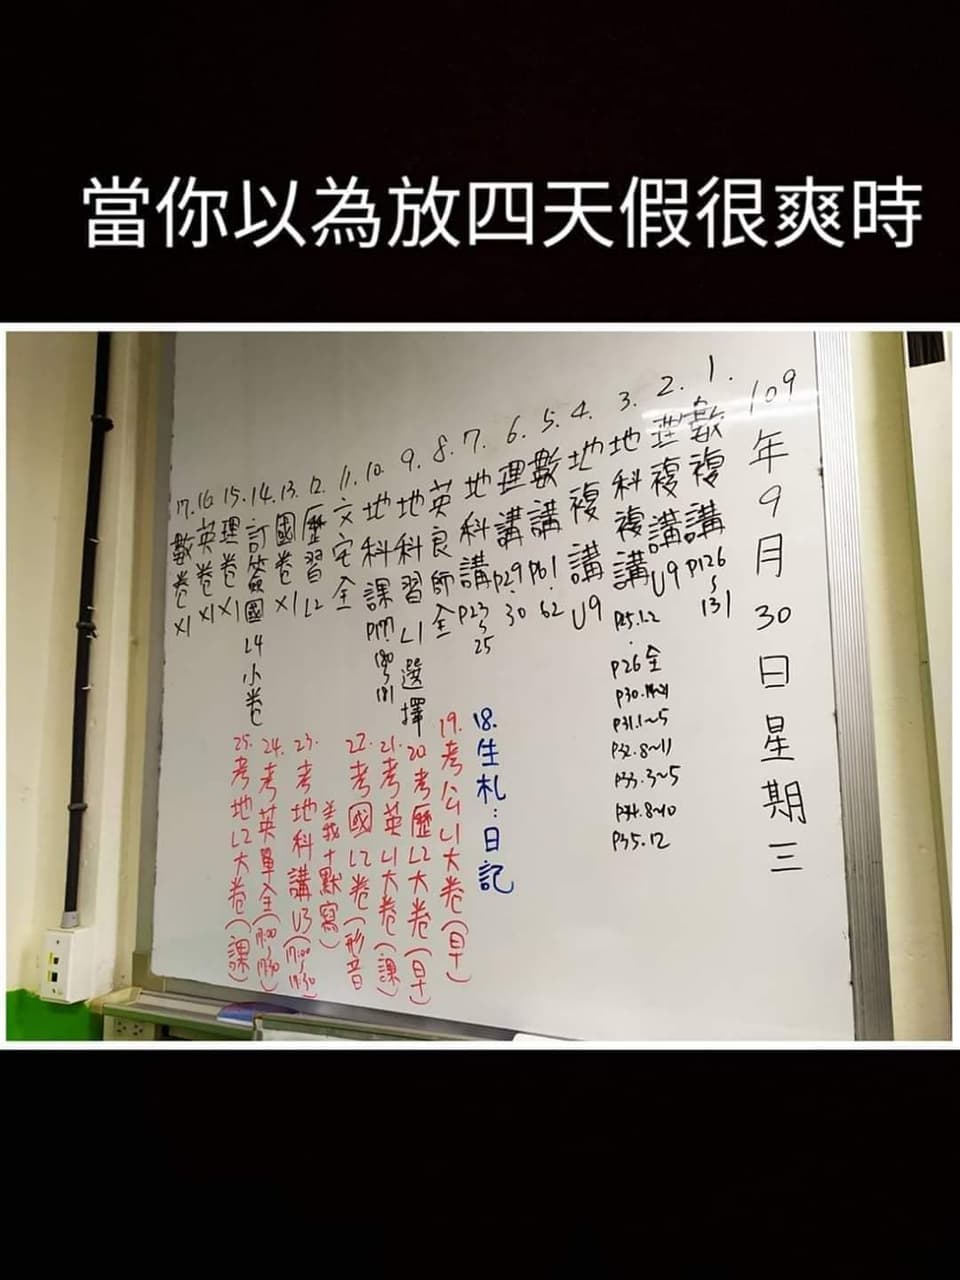 當你以為放四天假很爽時
109年9月30日星期三
1.數複講P126~131
2.理複講U9
3.地科複講
P26全
P31.1~5
P32.8~11
P33.3~5
P34.8~10
P35.12
4.地複講U9
5.數講P61.62
6.理講P29.30
7.地科講P23~25
8.英良師全
9.地科習L1選擇
10.地科課
11.文宅全
12.歷習L2
13.國卷x1
14.訂簽國L4小卷
15.理卷x1
16.英卷x1
17.數卷x1
18.生札:日記
19.考公L1大卷(早)
20.考歷L2大卷(早)
21.考英L1大卷(課)
22.考國L2卷(形音義+默寫)
23.考地科講U3(17:00~17:30)
24.考英單全(17:00~17:30)
25.考地L2大卷(課)